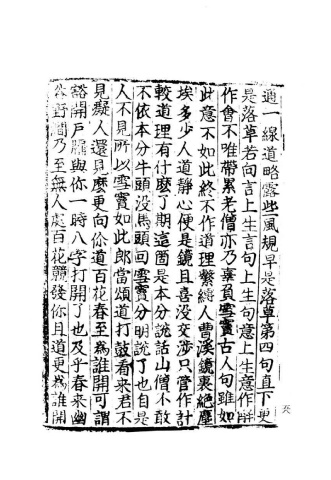 通一線道略露些風規早是落草第四句直下更
是落草若向言上生言句上生句意上生意作解
作會不唯帶累老僧亦乃辜負雪竇古人句雖如
此意不如此終不作道理繫縛人曹溪鏡裏絕塵
埃多少人道靜心便是鏡且喜没交涉只管作計
較道理有什麼了期這箇是本分說話山僧不敢
不依本分牛頭没馬頭回雪竇分明說了也自是
人不見所以雪竇如此郎當頌道打鼓看來君不
見癡人還見麼更向你道百花春至為誰開可謂
豁開戶牖與你一時八字打開了也及乎春來幽
谷野澗乃至無人處百花競發你且道更為誰開